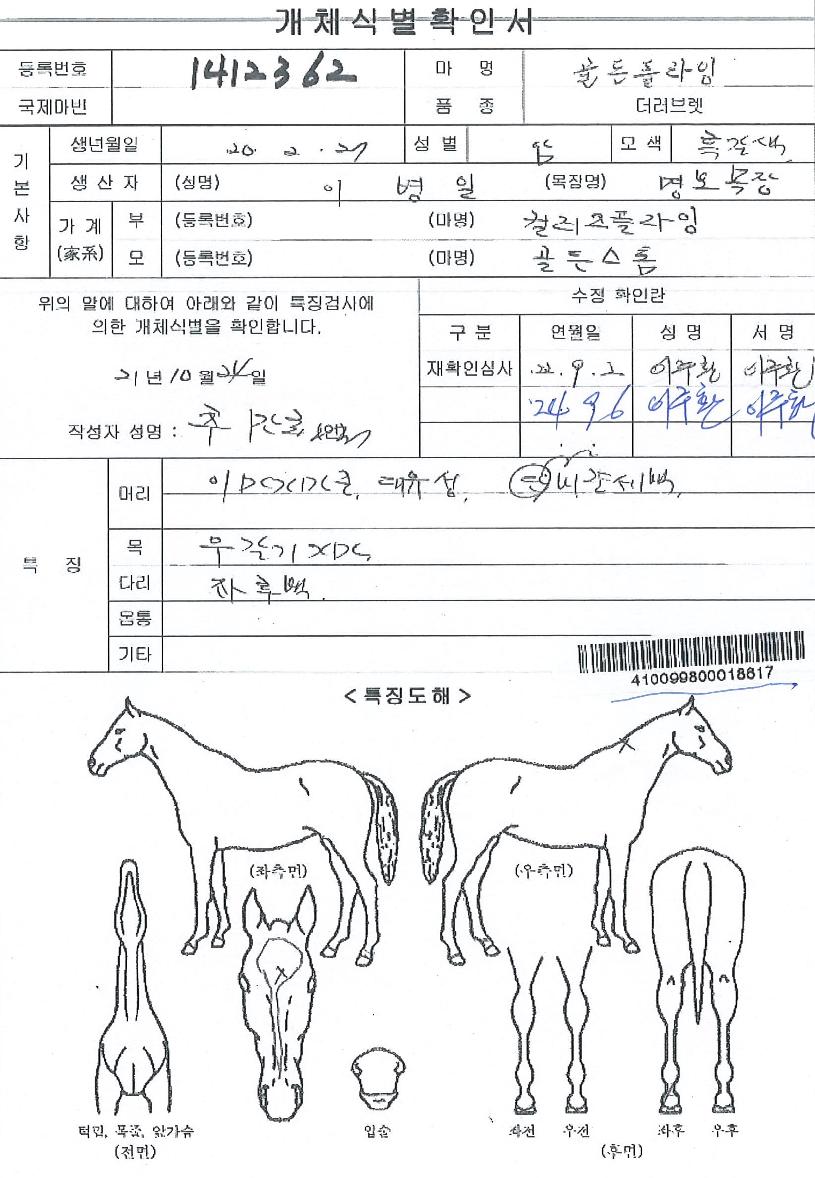 개체식별확인서
등록번호 1412362 마 명 골든플라잉
국제마번 품 종 더러브렛
기본사항
생년월일 20. 2. 27 성 별 암 모 색 흑갈색
생 산 자 (성명) 이 병 일 (목장명) 명보목장
가 계 (家系) 부 (등록번호) (마명) 컬러즈플라잉
모 (등록번호) (마명) 골든스톰
위의 말에 대하여 아래와 같이 특징검사에
의한 개체식별을 확인합니다.
21년 10월 24일
작성자 성명 :
수정 확인란
구 분 연월일 성 명 서 명
재확인심사 22. 9. 2 이주환 이주환
'24. 9. 6 이주환 이주환
특 징
머리 대유성, 비량세백
목
다리 좌후백.
몸통
기타
410099800018617
< 특징도해 >
(좌측면) (우측면)
턱밑, 목줄, 앞가슴
(전면)
입술
좌전 우전 좌후 우후
(후면)